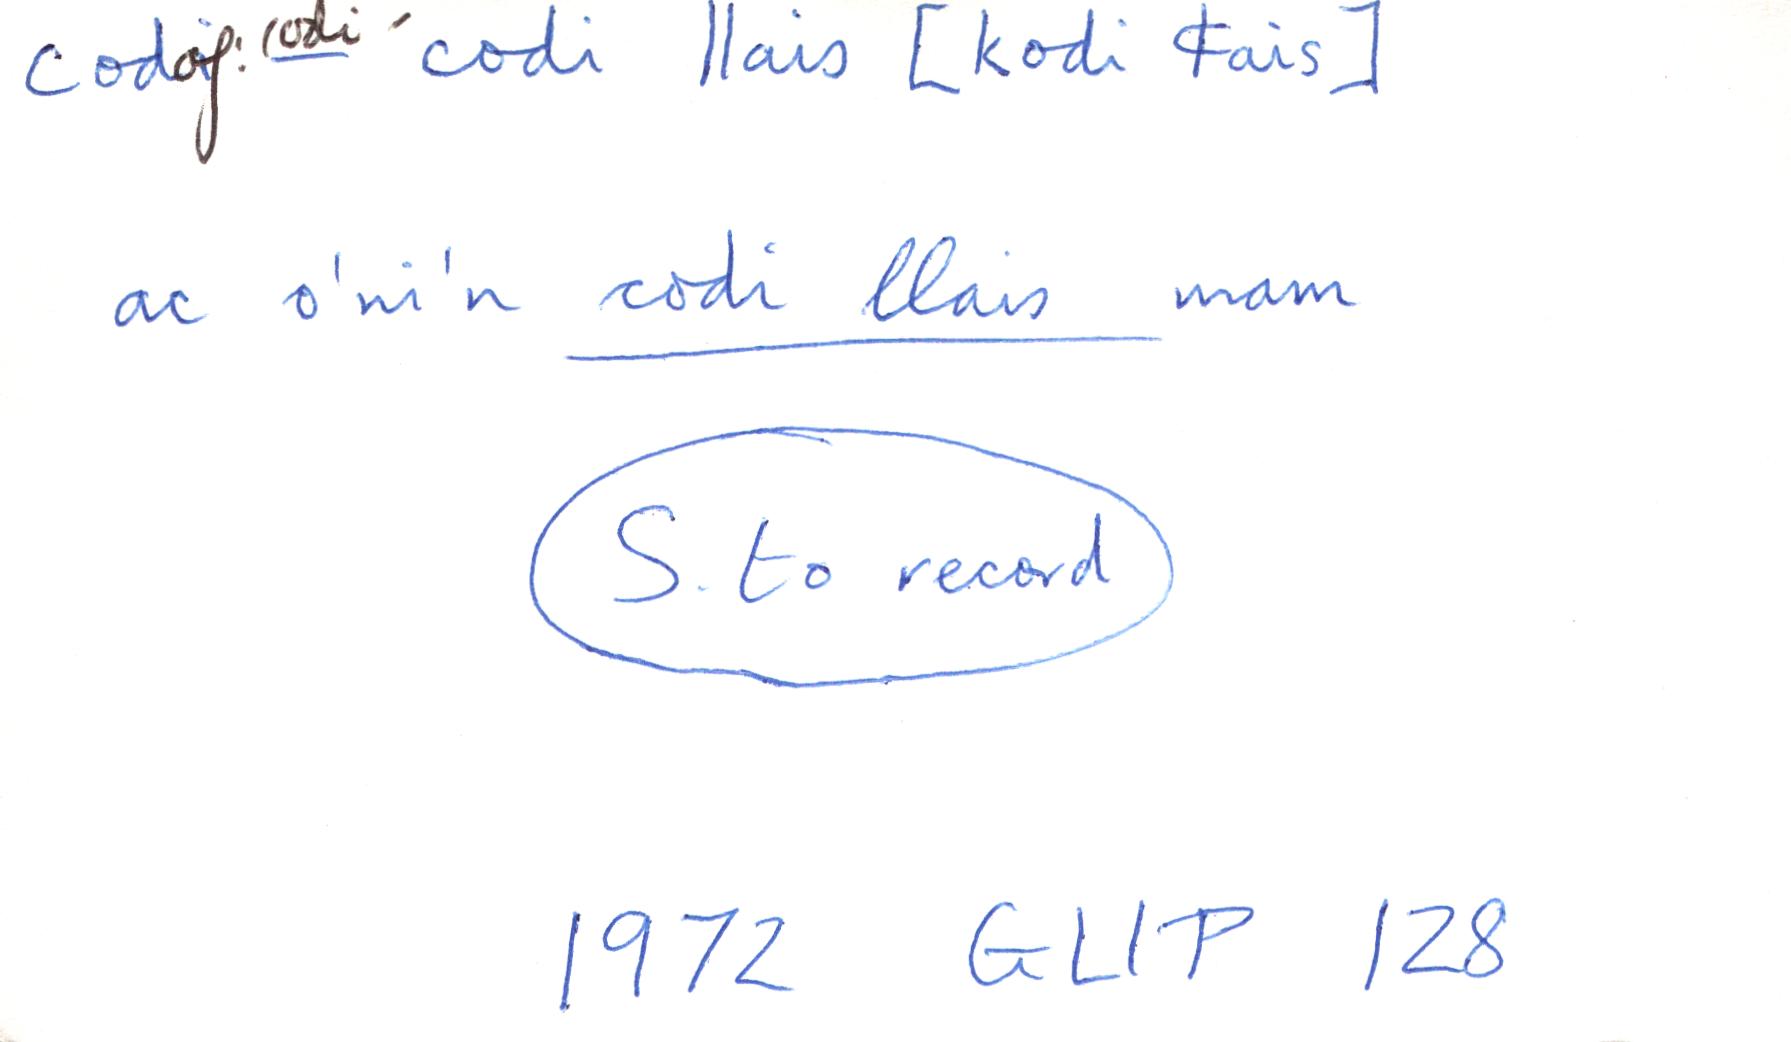 codaf: codi codi llais [kodi ɬais]
ac o'ni'n codi llais mam
S. to record
1972 GLlP 128